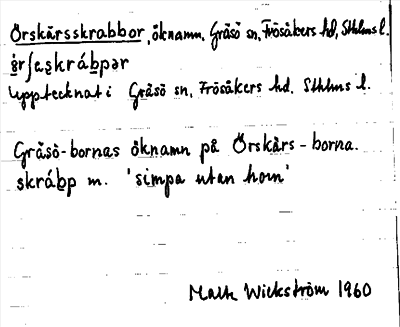 Örskärsskrabbor, öknamn. Gräsö sn, Frösåkers hd, Sthlms l.
Upptecknat i Gräsö sn, Frösåkers hd. Sthlms l.
Gräsö-bornas öknamn på Örskärs-borna.
skráb̥p m. 'simpa utan horn'
Wickström 1960